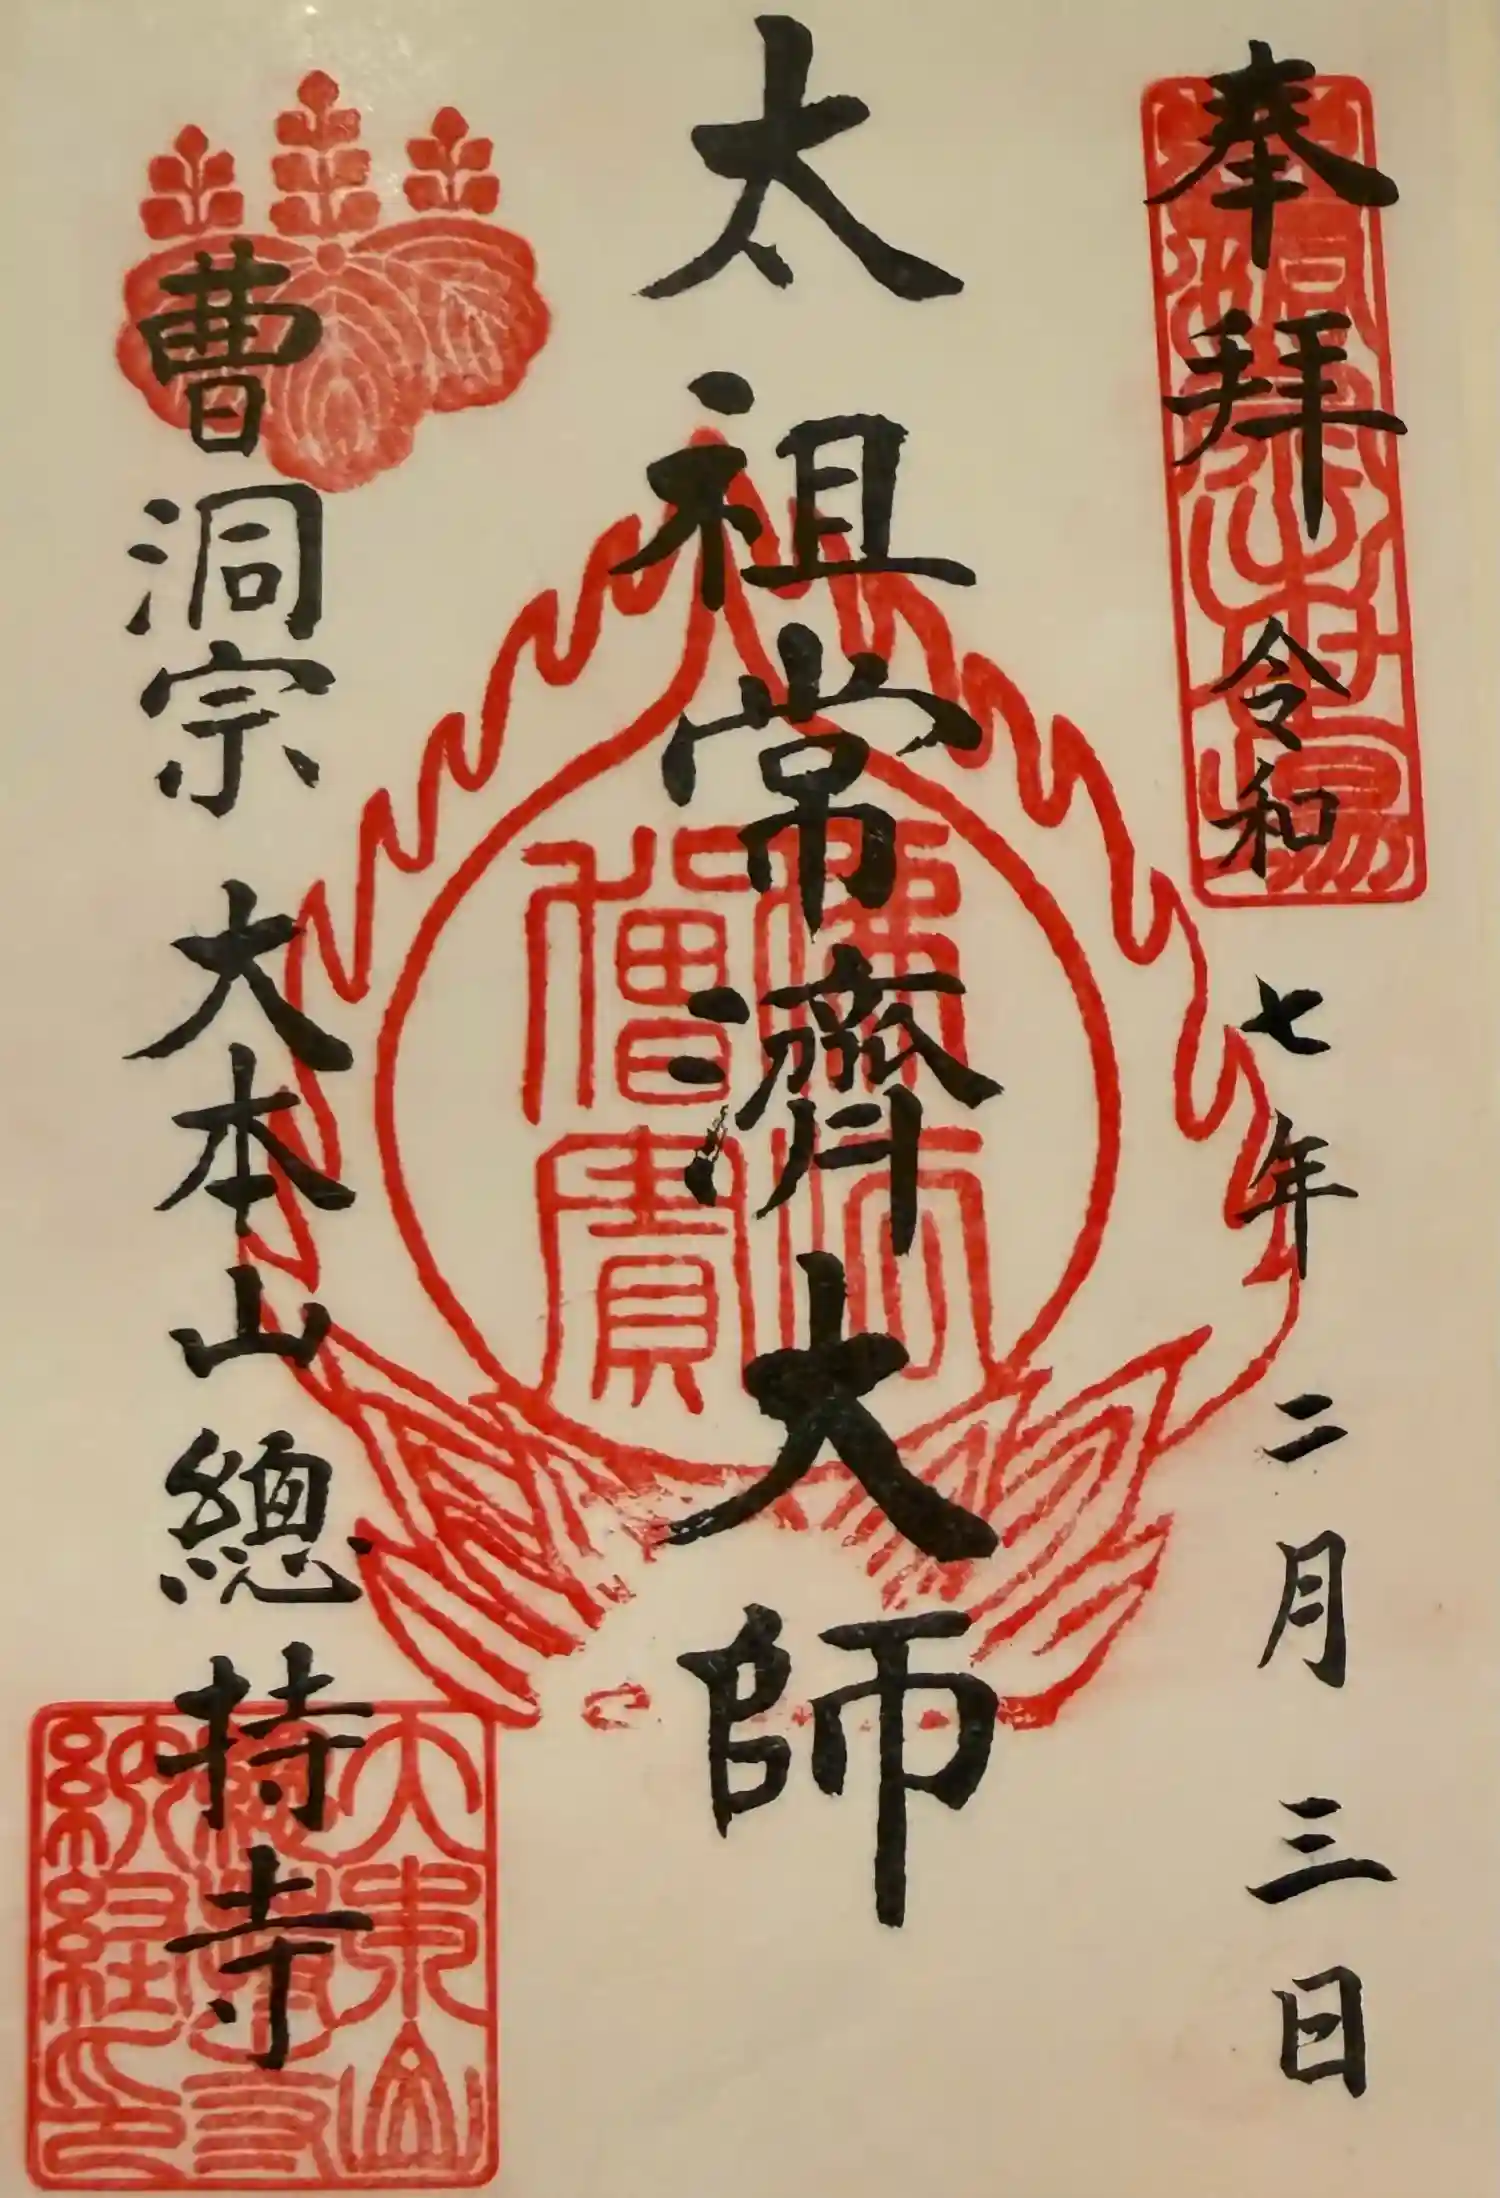 奉拜 令和 七年 二月 三日
太祖常濟大師
曹洞宗 大本山 總持寺
佛法僧寶